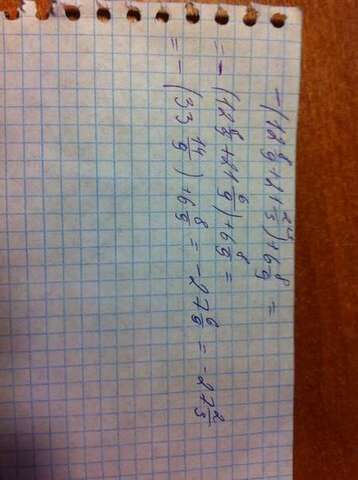 -(12 8/9 + 21 2/3) + 6 8/9 =
= -(12 8/9 + 21 6/9) + 6 8/9 =
= -(33 14/9) + 6 8/9 = -27 6/9 = -27 2/3